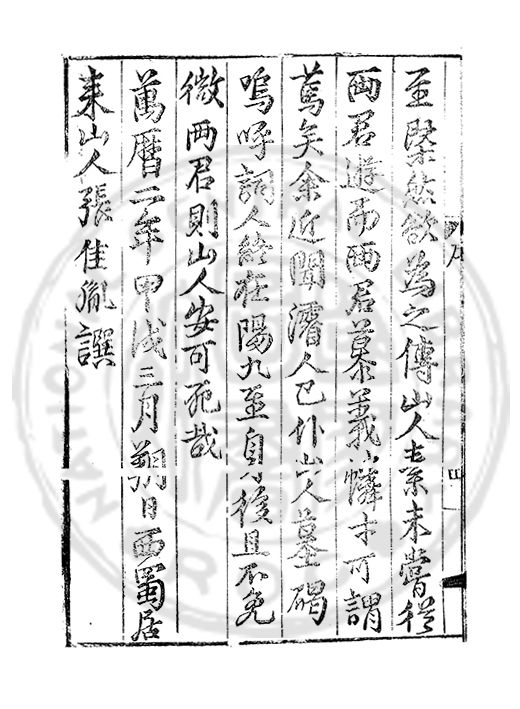 至槩然欲為之傳山人素未嘗從
兩君遊而兩君慕義憐才可謂
篤矣余近聞濬人已仆山人墓碣
嗚呼詞人終在陽九至身後且不免
微兩君則山人安可死哉
萬曆二年甲戌三月朔日西蜀居
來山人張佳胤譔
四